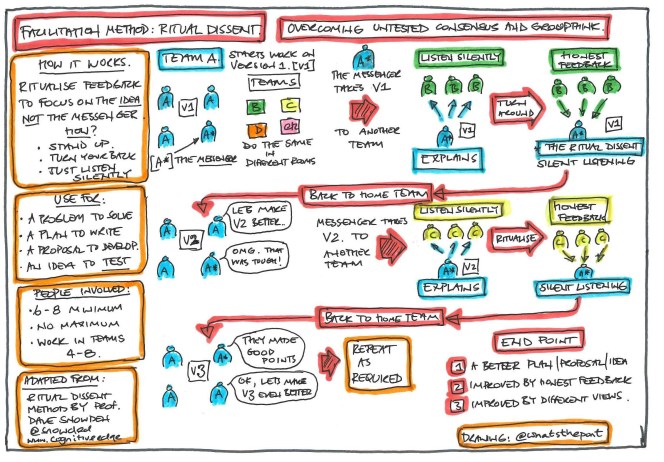 FACILITATION METHOD: RITUAL DISSENT.
OVERCOMING UNTESTED CONSENSUS AND GROUPTHINK.
HOW IT WORKS.
RITUALISE FEEDBACK
TO FOCUS ON THE IDEA
NOT THE MESSENGER
HOW?
• STAND UP.
• TURN YOUR BACK
• JUST LISTEN
SILENTLY
USE FOR:
• A PROBLEM TO SOLVE
• A PLAN TO WRITE
• A PROPOSAL TO DEVELOP.
• AN IDEA TO TEST
PEOPLE INVOLVED:
• 6-8 MINIMUM
• NO MAXIMUM
• WORK IN TEAMS
4-8.
ADAPTED FROM:
RITUAL DISSENT
METHOD BY PROF.
DAVE SNOWDEN
@snowded
www.cognitiveedge
TEAM A.
STARTS WORK ON
VERSION 1. [V1]
A A
V1
A A*
[A*] THE MESSENGER
TEAMS
B C
D
DO THE SAME
IN
DIFFERENT ROOMS
A*
THE MESSENGER
TAKES V1
TO ANOTHER
TEAM
LISTEN SILENTLY
B B B
A* V1
EXPLAINS
TURN
AROUND
HONEST
FEEDBACK
B B B
A* V1
THE RITUAL DISSENT
SILENT LISTENING
BACK TO HOME TEAM
A A
V2
A A*
LETS MAKE
V2 BETTER..
OMG. THAT
WAS TOUGH!
MESSENGER TAKES
V2. TO
ANOTHER
TEAM
LISTEN SILENTLY
C C C
A* V2
EXPLAINS
RITUALISE
HONEST
FEEDBACK
C C C
A*
SILENT LISTENING
BACK TO HOME TEAM
A A*
V3
A A
THEY MADE
GOOD
POINTS
OK, LETS MAKE
V3 EVEN BETTER
REPEAT
AS
REQUIRED
END POINT
1 A BETTER PLAN/PROPOSAL/IDEA
2 IMPROVED BY HONEST FEEDBACK
3 IMPROVED BY DIFFERENT VIEWS.
DRAWING: @whatsthepont